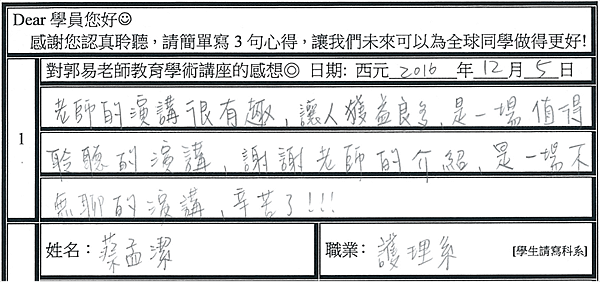 Dear 學員您好☺
感謝您認真聆聽，請簡單寫 3 句心得，讓我們未來可以為全球同學做得更好!
對郭易老師教育學術講座的感想◎ 日期: 西元 2016 年 12 月 5 日
1
老師的演講很有趣，讓人獲益良多，是一場值得
聆聽的演講，謝謝老師的介紹，是一場不
無聊的演講，辛苦了!!!
姓名：蔡孟潔 職業：護理系 [學生請寫科系]